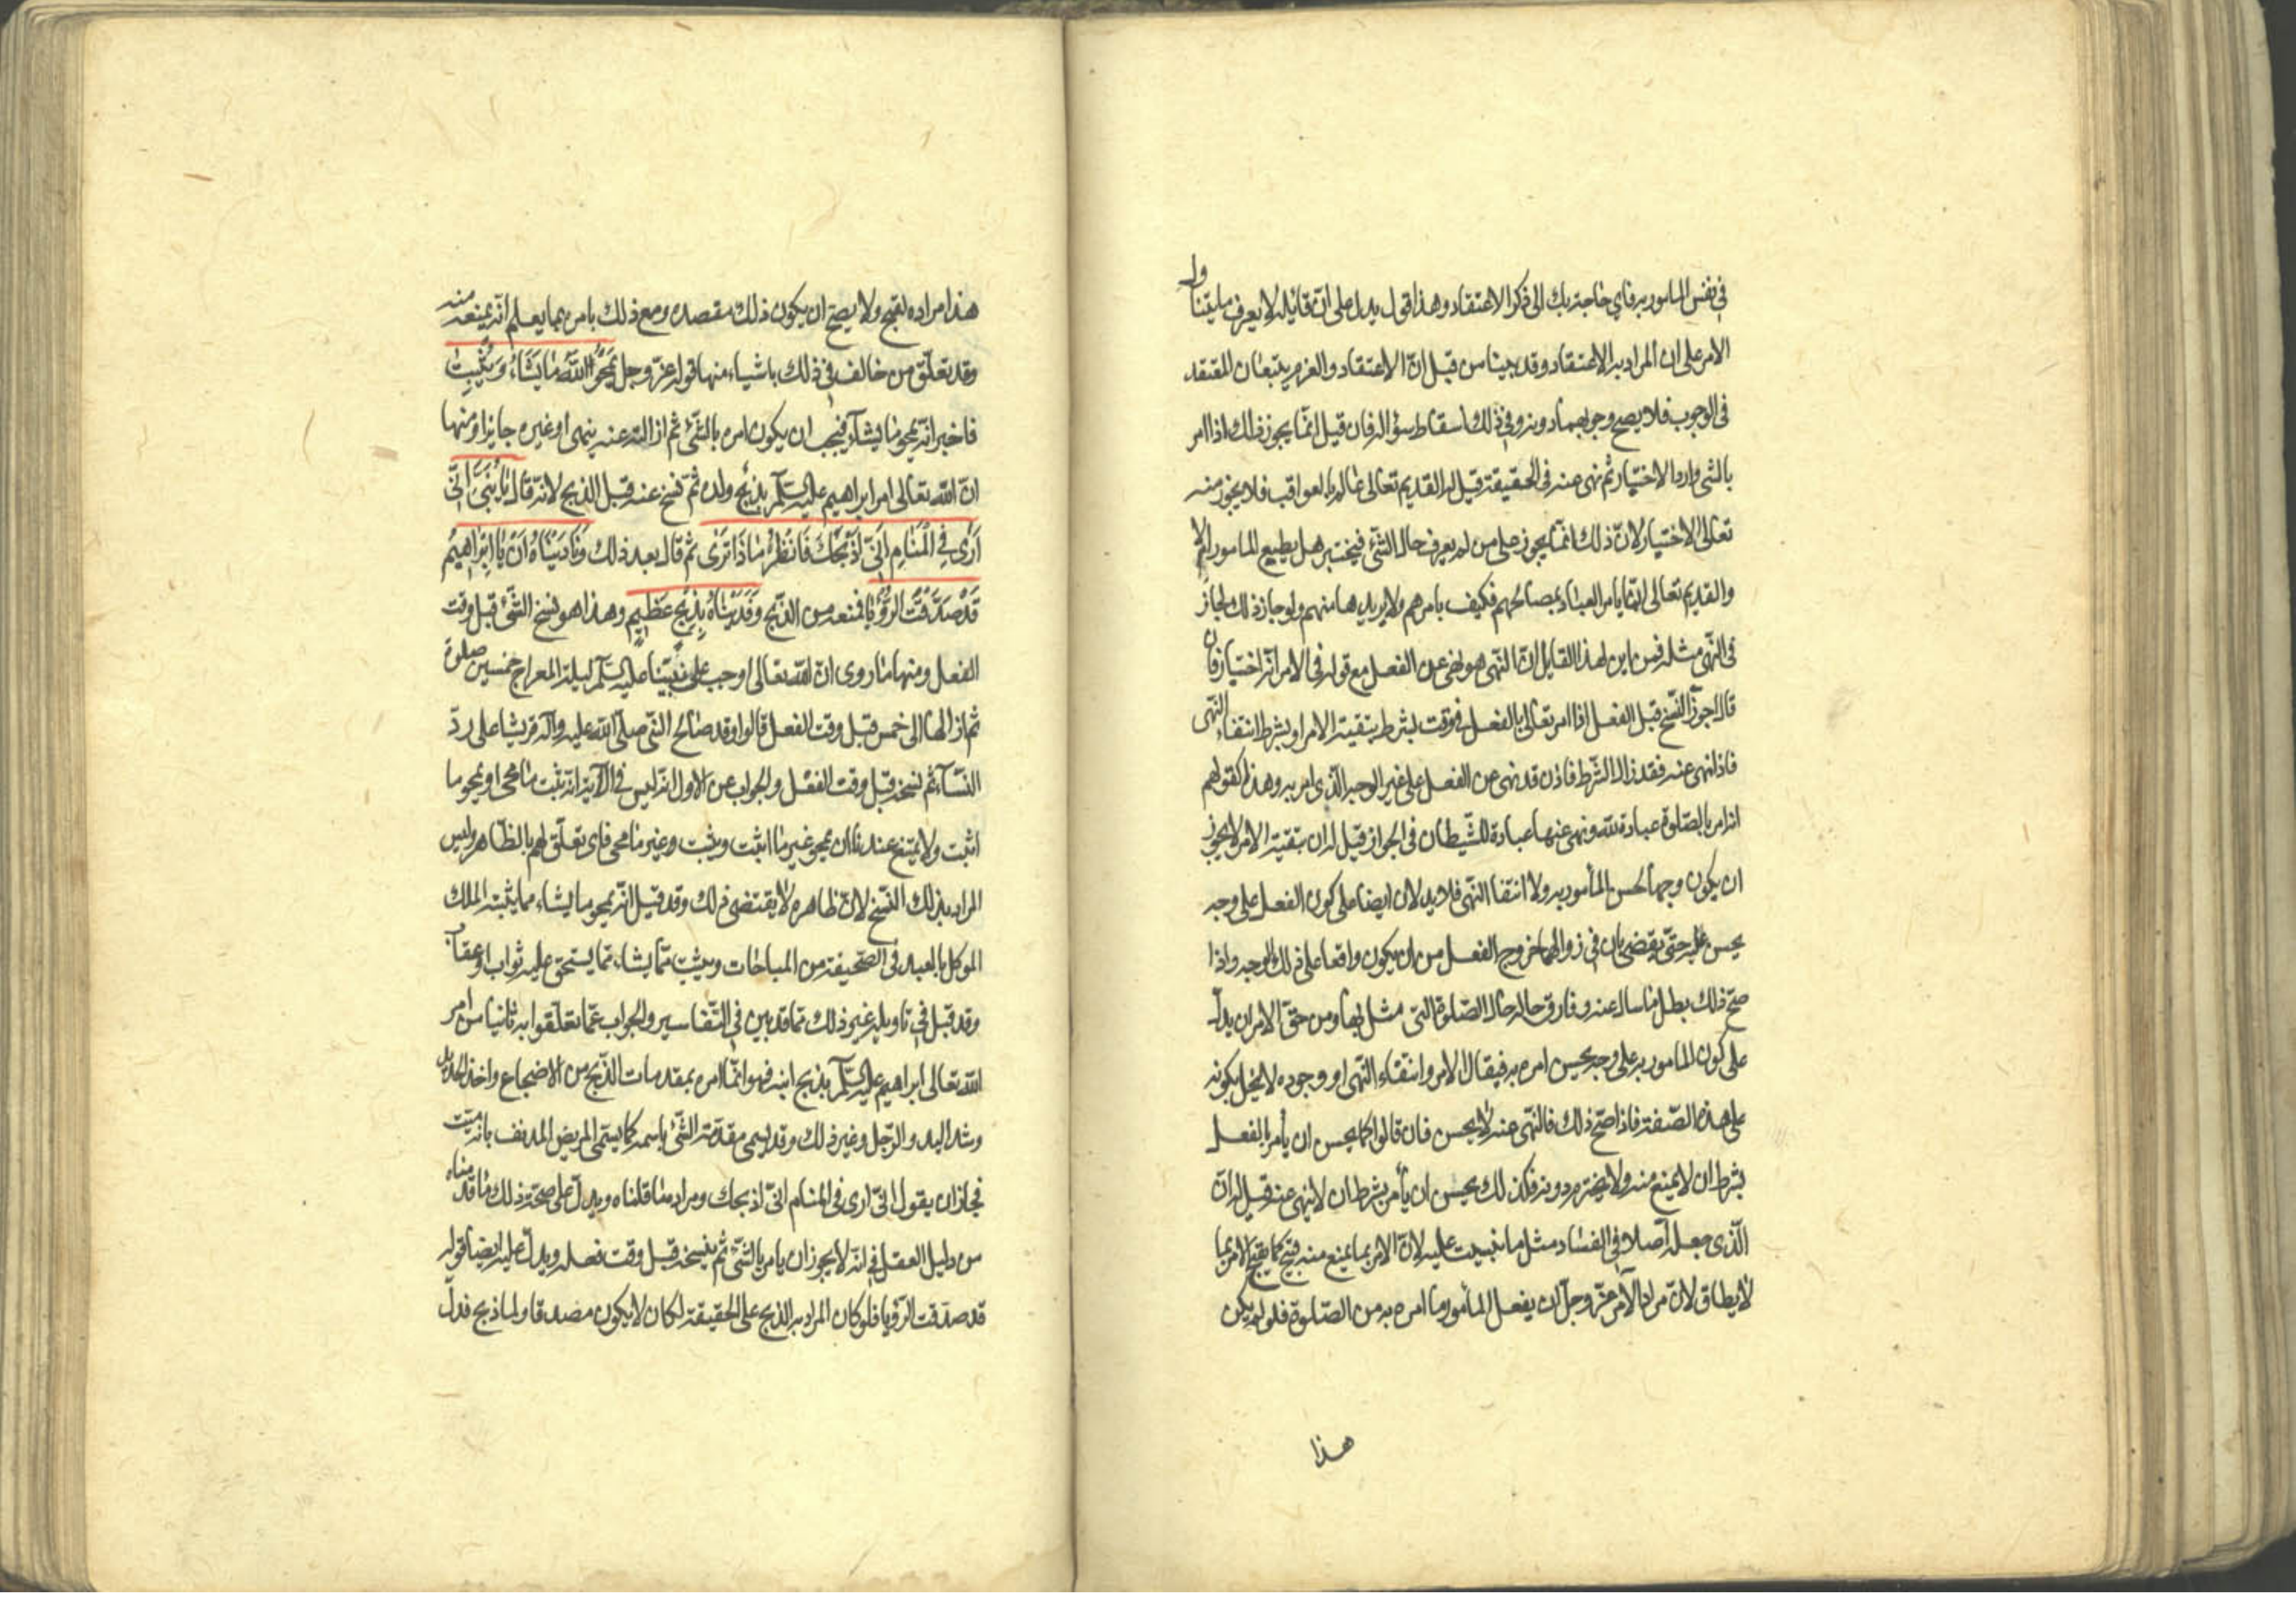 في نفس المامور به فاي حاجة بك الى ذكر الاعتقاد وهذا قول يدل على ان قائله لا يعرف ما يتنا ول
الامر على ان المراد به الاعتقاد وقد بينا من قبل ان الاعتقاد والعزم يتبعان المعتقد
في الوجوب فلا يصح وجوبهما دونه وفي ذلك اسقاط سؤاله فان قيل انما يجوز ذلك اذا امر
بالشي واراد الاختيار ثم نهى عنه في الحقيقة قيل له القديم تعالى عالم بالعواقب فلا يجوز منه
تعالى الاختيار لان ذلك انما يجوز على من لم يعرف حال الشئ فيختبر هل يطيع المامور ام لا
والقديم تعالى انما يامر العباد بمصالحهم فكيف يامرهم ولا يريدها منهم ولو جاز ذلك لجاز
في النهى مثله فمن اين لهذا القايل ان النهى هو نهى عن الفعل مع قوله في الامر انه اختيار فان
قال اجوز النسخ قبل الفعل اذا امر تعالى بالفعل في وقت بشرط تبقية الامر او بشرط انتفاء النهى
فاذا نهى عنه فقد زال الشرط فاذن قد نهى عن الفعل على غير الوجه الذى امر به وهذا كقولهم
اذا امر بالصلوة عبادة لله ونهى عنها عبادة للشيطان في الجواز قيل له ان تبقية الامر لا يجوز
ان يكون وجها لحسن المأمور به ولا انتفا النهى فلا يدلان ايضا على كون الفعل على وجه
يحسن عليه حتى يقضى بان في زوالهما خروج الفعل من ان يكون واقعا على ذلك الوجه واذا
صح ذلك بطل ما سال عنه وفارق حاله حال الصلوة التي مثل بها ومن حق الامر ان يدل
على كون المامور به على وجه يحسن امره به فيقال الامر وانتفاء النهى او وجوده لا يخل بكونه
على هذه الصفة فاذا صح ذلك فالنهى عنه لا يحسن فان قالوا كما يحسن ان يأمر بالفعل
بشرط ان لا يمنع منه ولا يخترم دونه فكذلك يحسن ان يأمر بشرط ان لا ينهى عنه قيل له ان
الذى جعله اصلا في الفساد مثل ما بنيت عليه لان الامر بما يمنع منه قبيح كما يقبح الامر بما
لا يطاق لان مراد الآمر عز وجل ان يفعل المأمور ما امره به من الصلوة فلو لم يكن
هذا
هذا مراده لقبح ولا يصح ان يكون ذلك مقصده ومع ذلك يامر بما يعلم انه يمنعه منه
وقد تعلق من خالف في ذلك باشياء منها قوله عز وجل يَمحُو اللّه ما يَشَاءُ وَيُثْبِتُ
فاخبر انه يمحو ما يشاء فيجب ان يكون امره بالشئ ثم ازالته عنه بنهى او غيره جايزا ومنها
ان الله تعالى امر ابراهيم عليه السلم بذبح ولده ثم نسخ عنه قبل الذبح لانه قال يَا بُنَيَّ اِنّي
اَرٰى فِي الْمَنَامِ اَنّي اَذْبَحُكَ فَانْظُرْ مَاذَا تَرٰى ثم قال بعد ذلك وَنَادَيْنَاهُ اَنْ يَا اِبْرَاهِيمُ
قَدْ صَدَّقْتَ الرُّؤْيَا فمنعه من الذبح وَفَدَيْنَاهُ بِذِبْحٍ عَظِيمٍ وهذا هو نسخ الشئ قبل وقت
الفعل ومنها ما روى ان الله تعالى اوجب على نبينا عليه السلم ليلة المعراج خمسين صلوة
ثم ازالها الى خمس قبل وقت الفعل قالوا وقد صالح النبي صلى الله عليه وآله قريشا على رد
النساء ثم نسخه قبل وقت الفعل والجواب عن الاول انه ليس في الآية انه يثبت ما محى او يمحو ما
اثبت ولا يمتنع عندنا ان يمحو غير ما اثبت ويثبت وغير ما محى فاى تعلق لهم بالظاهر وليس
المراد بذلك النسخ لان ظاهره لا يقتضى ذلك وقد قيل انه يمحو ما يشاء مما يثبته الملك
الموكل بالعبد في الصحيفة من المباحات ويثبت ما يشاء مما يستحق عليه ثواب او عقاب
وقد قيل في تاويله غير ذلك مما قد بين في التفاسير والجواب عما تعلقوا به ثانيا من امر
الله تعالى ابراهيم عليه السلم بذبح ابنه فهو انما امره بمقدمات الذبح من الاضجاع واخذ الحديد
وشد اليد والرجل وغير ذلك وقد يسمى مقدمة الشئ باسمه كما يسمى المريض المدنف بانه ميت
فجاز ان يقول انى ارى في المنام انى اذبحك ومراده ما قلناه ويدل على صحة ذلك ما قدمناه
من دليل العقل في انه لا يجوز ان يامر بالشئ ثم ينسخه قبل وقت فعله ويدل عليه ايضا قوله
قد صدقت الرؤيا فلو كان المراد به الذبح على الحقيقة لكان لا يكون مصدقا ولما ذبح فدل